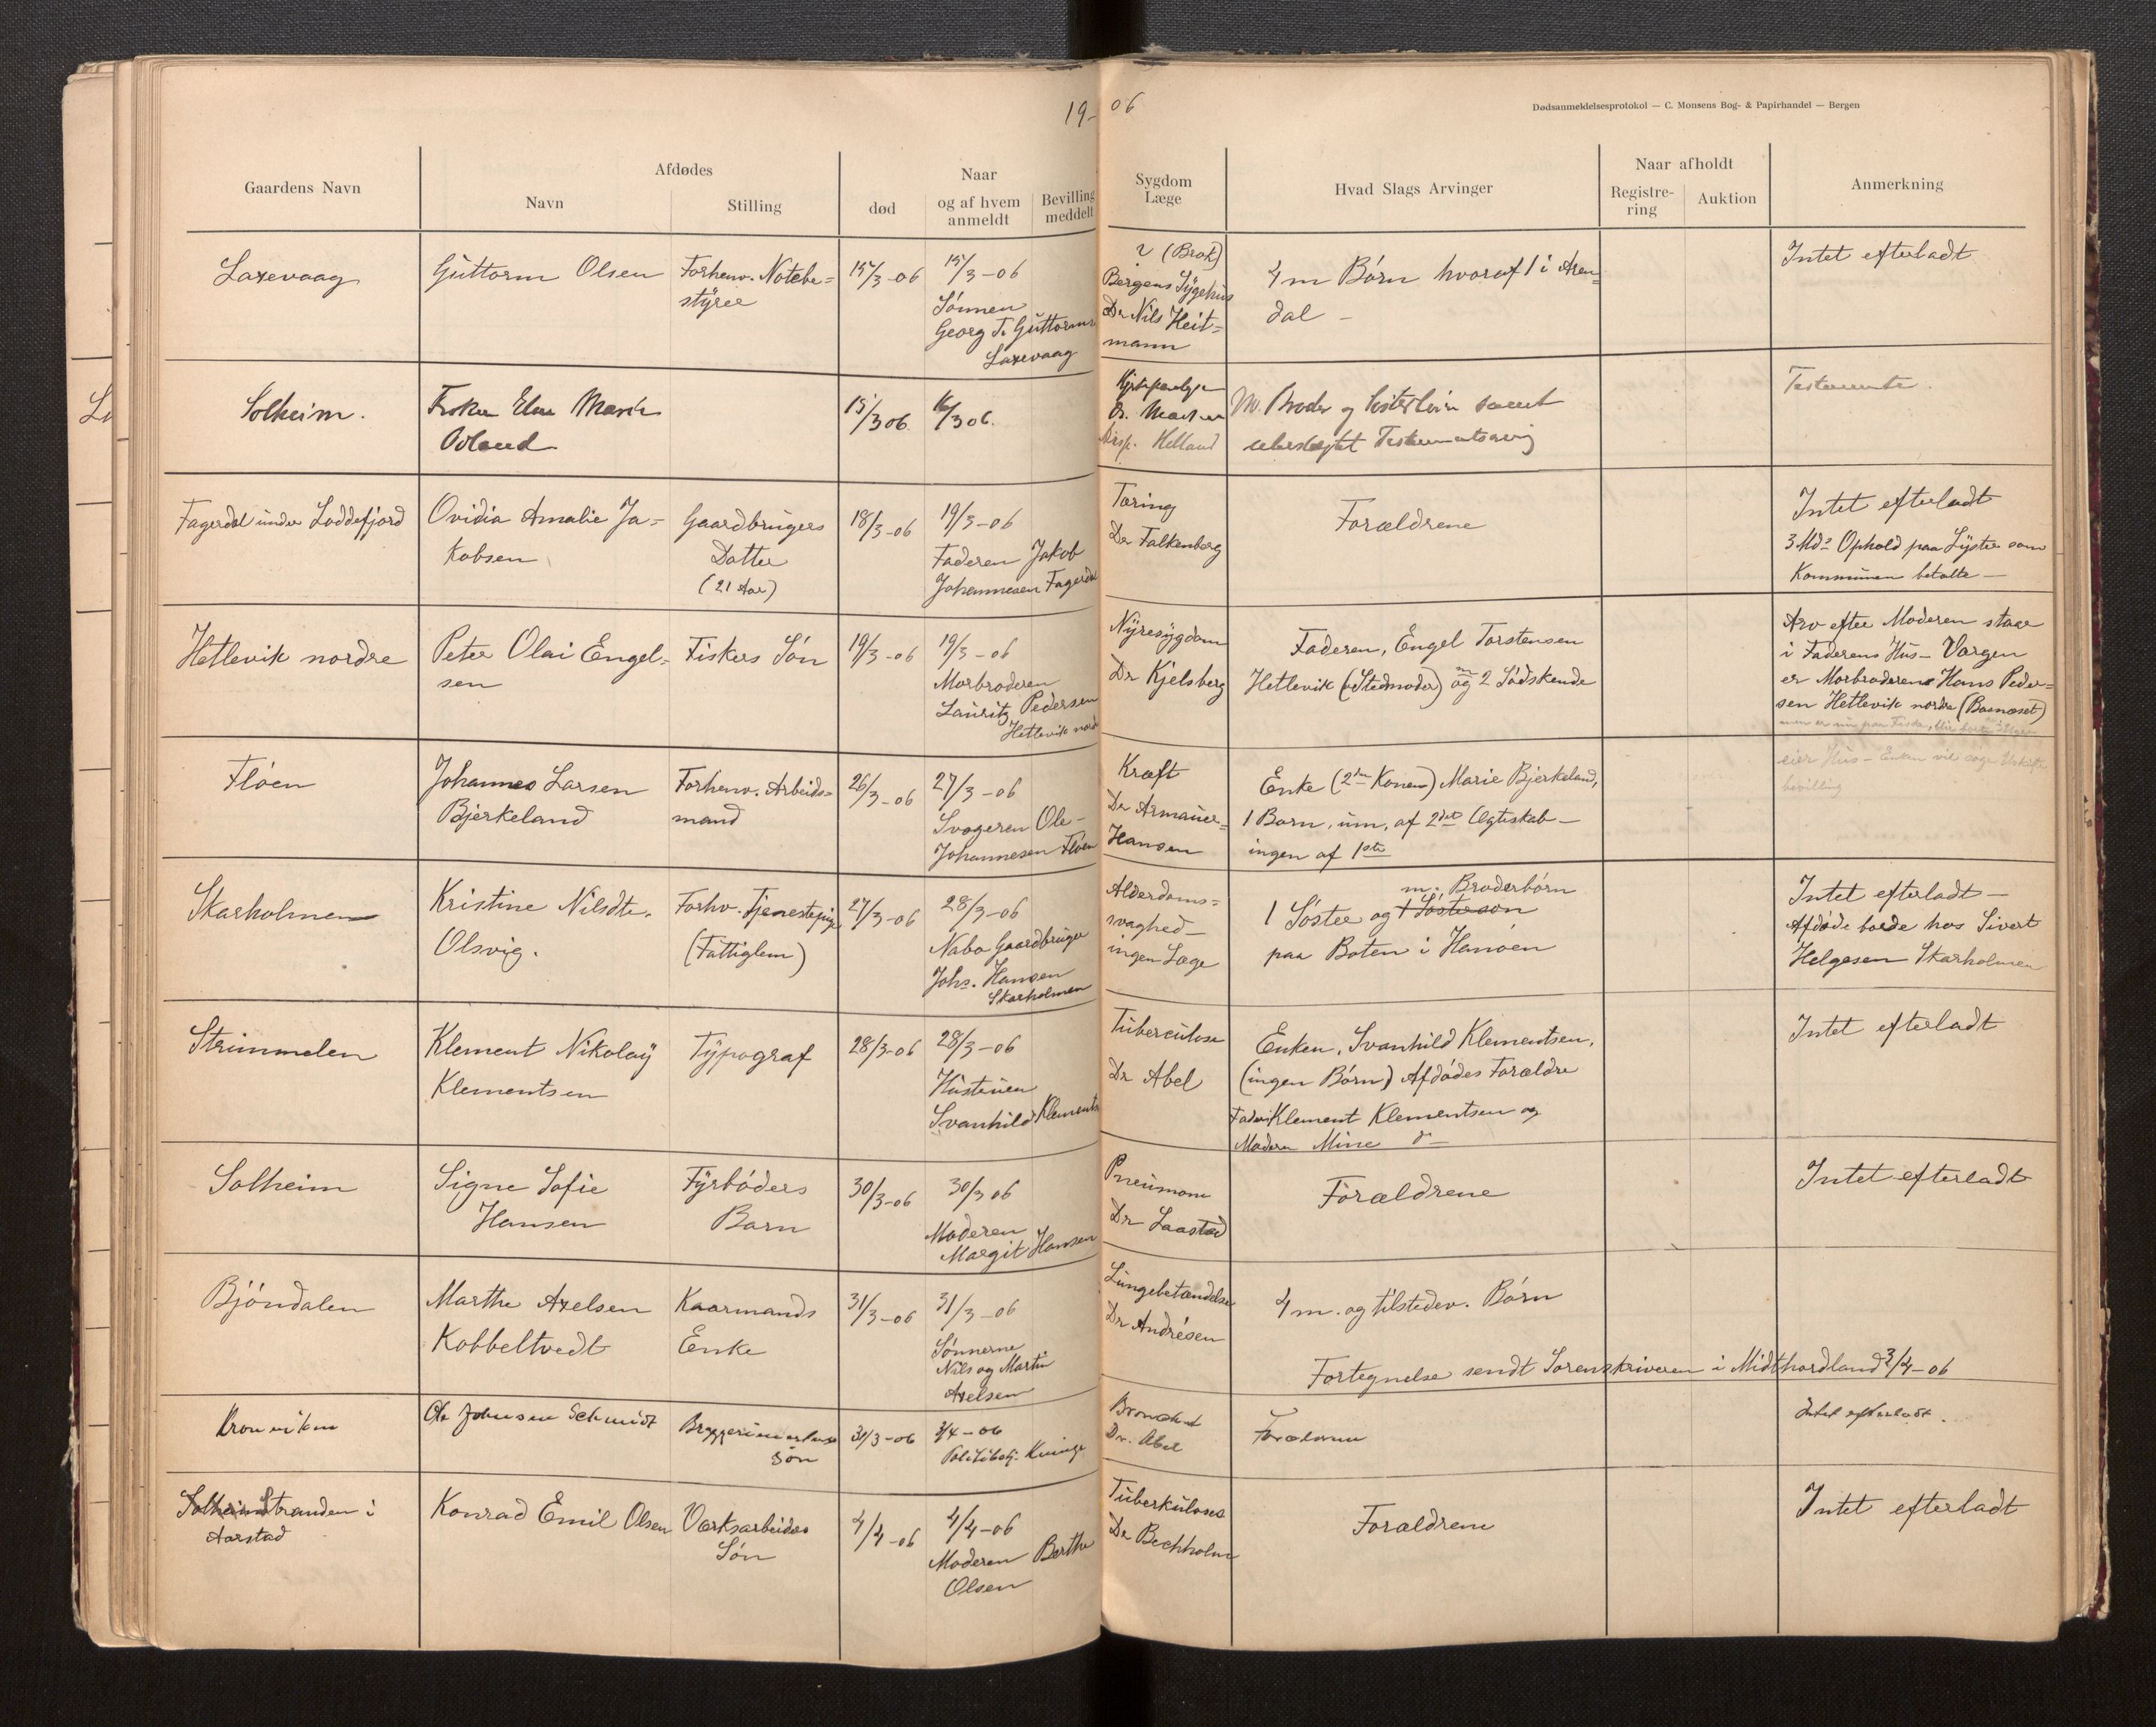 19-06
Dødsanmeldelsesprotokol — C. Monsens Bog- & Papirhandel — Bergen
Gaardens Navn
Afdødes
Navn
Stilling
død
Naar
og af hvem
anmeldt
Bevilling
meddelt
Sygdom
Læge
Hvad Slags Arvinger
Naar afholdt
Registre-
ring
Auktion
Anmerkning
Laxevaag
Guttorm Olsen
Forhenv. Notebe=
styrer
15/3-06
15/3-06
Sønnen
Georg T. Guttorms
Laxevaag
? (Brok)
Bergens Sygehus
Dr Nils Heit=
mann
4 m Børn hvoraf 1 i Aren=
dal -
Intet efterladt
Solheim.
Frøken Marie
15/3 06
16/3 06.
Helland
M. Broder og Søsterbørn samt
Testamentsarving
Testamente.
Fagerdal under Loddefjord
Ovidia Amalie Ja=
kobsen
Gaardbrugers
Datter
(21 Aar)
18/3-06
19/3-06
Faderen Jakob
Johannesen Fagerdal
Tæring
Dr Falkenberg
Forældrene
Intet efterladt
3 Mds Ophold paa Lyster som
Kommunen betalte —
Hetlevik nordre
Peter Olai Engel=
sen
Fiskers Søn
19/3-06
19/3-06
Morbroderen
Lauritz Pedersen
Hetlevik nord
Nyresygdom
Dr Kjelsberg
Faderen, Engel Torstensen
Hetlevik (Stedmoder) og 2 m Sødskende
Arv efter Moderen staar
i Faderens Hus - Værgen
er Morbroderen Hans Peder=
sen Hetlevik nordre (Baneset)
Fløen
Johannes Larsen
Bjerkeland
Forhenv. Arbeids=
mand
26/3-06
27/3-06
Svogeren Ole
Johannesen Fløen
Kræft
Dr Armauer=
Hansen
Enke (2den Konen) Marie Bjerkeland,
1 Barn, um, af 2det Ægteskab -
ingen af 1ste
eier Hus - Enken vil søge Uskifte
bevilling
Skarholmen
Kristine Nilsdtr.
Olsvig.
Forhv. Tjenestepige
(Fattiglem)
27/3-06
28/3-06
Nabo Gaardbruger
Johs. Hansen
Skarholmen
Alderdoms=
svaghed -
ingen Læge
m. Broderbørn
1 Søster og 1 Søstersøn
paa Boten i Hanøen
Intet efterladt -
Afdøde boede hos Sivert
Helgesen Skarholmen
Strimmelen
Klement Nikolay
Klementsen
Typograf
28/3-06
28/3-06
Hustruen
Svanhild Klements
Tuberculose
Dr Abel
Enken, Svanhild Klementsen,
(ingen Børn) Afdødes Forældre
Fader Klement Klementsen og
Moderen Mine do
Intet efterladt
Solheim
Signe Sofie
Hansen
Fyrbøders
Barn
30/3-06
30/3 06
Moderen
Margit Hansen
Pneumoni
Dr Laastad
Forældrene
Intet efterladt
Bjøndalen
Marthe Axelsen
Kobbeltvedt
Kaarmands
Enke
31/3-06
31/3-06
Sønnerne
Nils og Martin
Axelsen
Lungebetændelse
Dr Andrésen
4 m. og tilstedev. Børn
Fortegnelse sendt Sorenskriveren i Midthordland 3/4-06
Kronviken
Ole Johnsen Schmidt
Bryggerimesters
Søn
31/3-06
3/4-06
Politibetj.
Dr. Abel
Forældrene
Intet efterladt.
Solheim Stranden i
Aarstad
Konrad Emil Olsen
Værksarbeiders
Søn
4/4-06
4/4-06
Moderen Berthe
Olsen
Tuberkulose
Dr Bechholm
Forældrene
Intet efterladt